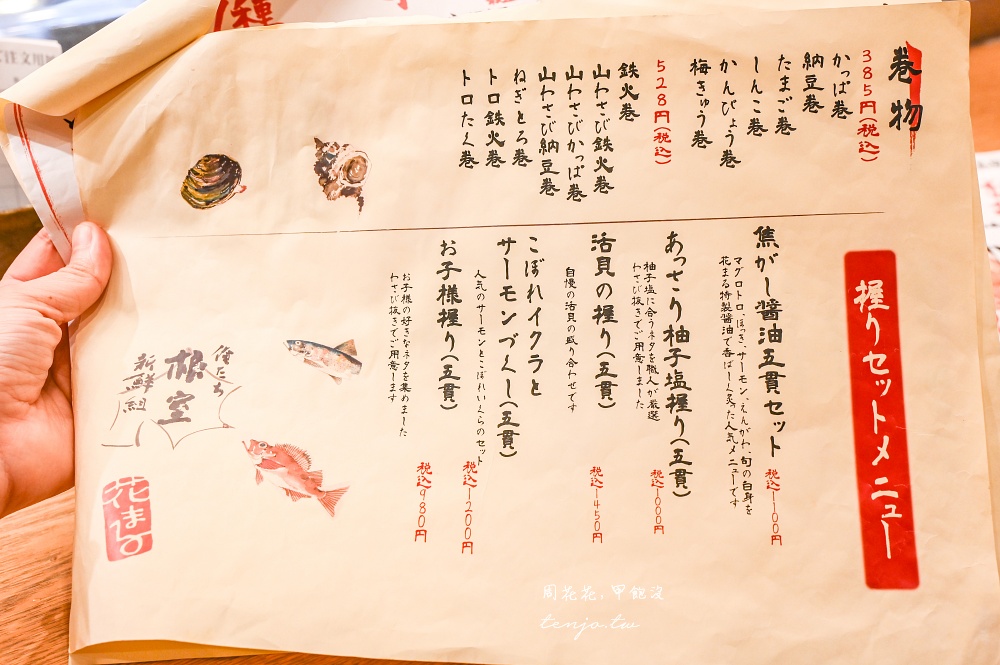 巻物
385円(税込)
かっぱ巻
納豆巻
たまご巻
しんこ巻
かんぴょう巻
梅きゅう巻
528円(税込)
鉄火巻
山わさび鉄火巻
山わさびかっぱ巻
山わさび納豆巻
ねぎとろ巻
トロ鉄火巻
トロたく巻
握りセットメニュー
焦がし醤油五貫セット
税込1100円
マグロトロ、ほっき、サーモン、えんがわ、旬の白身を
花まる特製醤油で香ばしく炙った人気メニューです
あっさり柚子塩握り(五貫)
税込1000円
柚子塩に合うネタを職人が厳選
わさび抜きでご用意しました
活貝の握り(五貫)
税込1450円
自慢の活貝の盛り合わせです
こぼれイクラと
サーモンづくし(五貫)
税込1200円
人気のサーモンとこぼれいくらのセット
お子様握り(五貫)
税込980円
お子様の好きなネタを集めました
わさび抜きでご用意します
俺たち
根室
新鮮組
花まる
ご注文用紙
種
周花花,甲飽沒
tenjo.tw